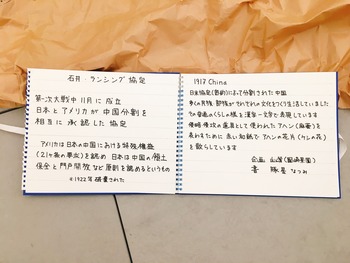 石井・ランシング協定
第一次大戦中 11月に成立
日本とアメリカが中国分割を
相互に承認した協定
アメリカは日本の中国における特殊権益
(21ヶ条の要求)を認め 日本は中国の領土
保全と門戸開放など原則を認めるというもの
※1922年破棄された
1917 China
日米協定(密約)によって分割された中国
多くの民族、部族がそれぞれの文化をつくり生活していました
その各国のくらしの様を漢字一文字で表現しています
侵略侵攻の道具として使われたアヘン(麻薬)を
表わすために赤い和紙で アヘンの花片(ケシの花)
を散らしています
企画 山塚
書 豚星なつみ